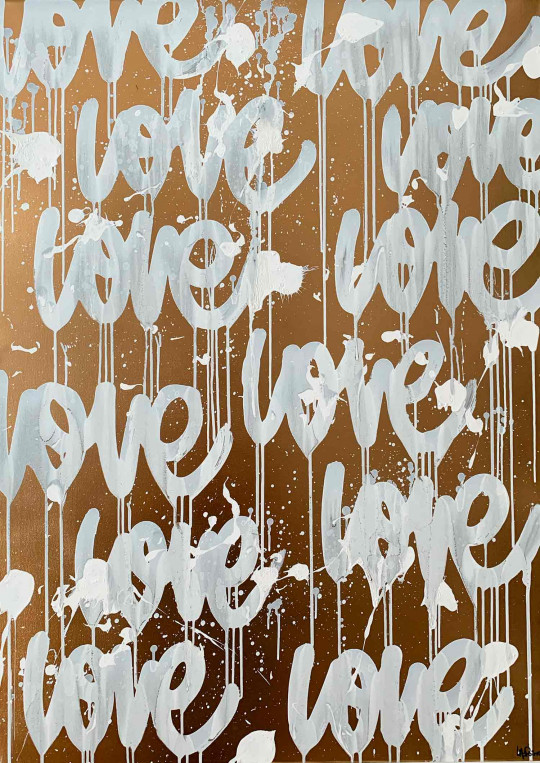 love love
love love
love love
love love
love love
love love